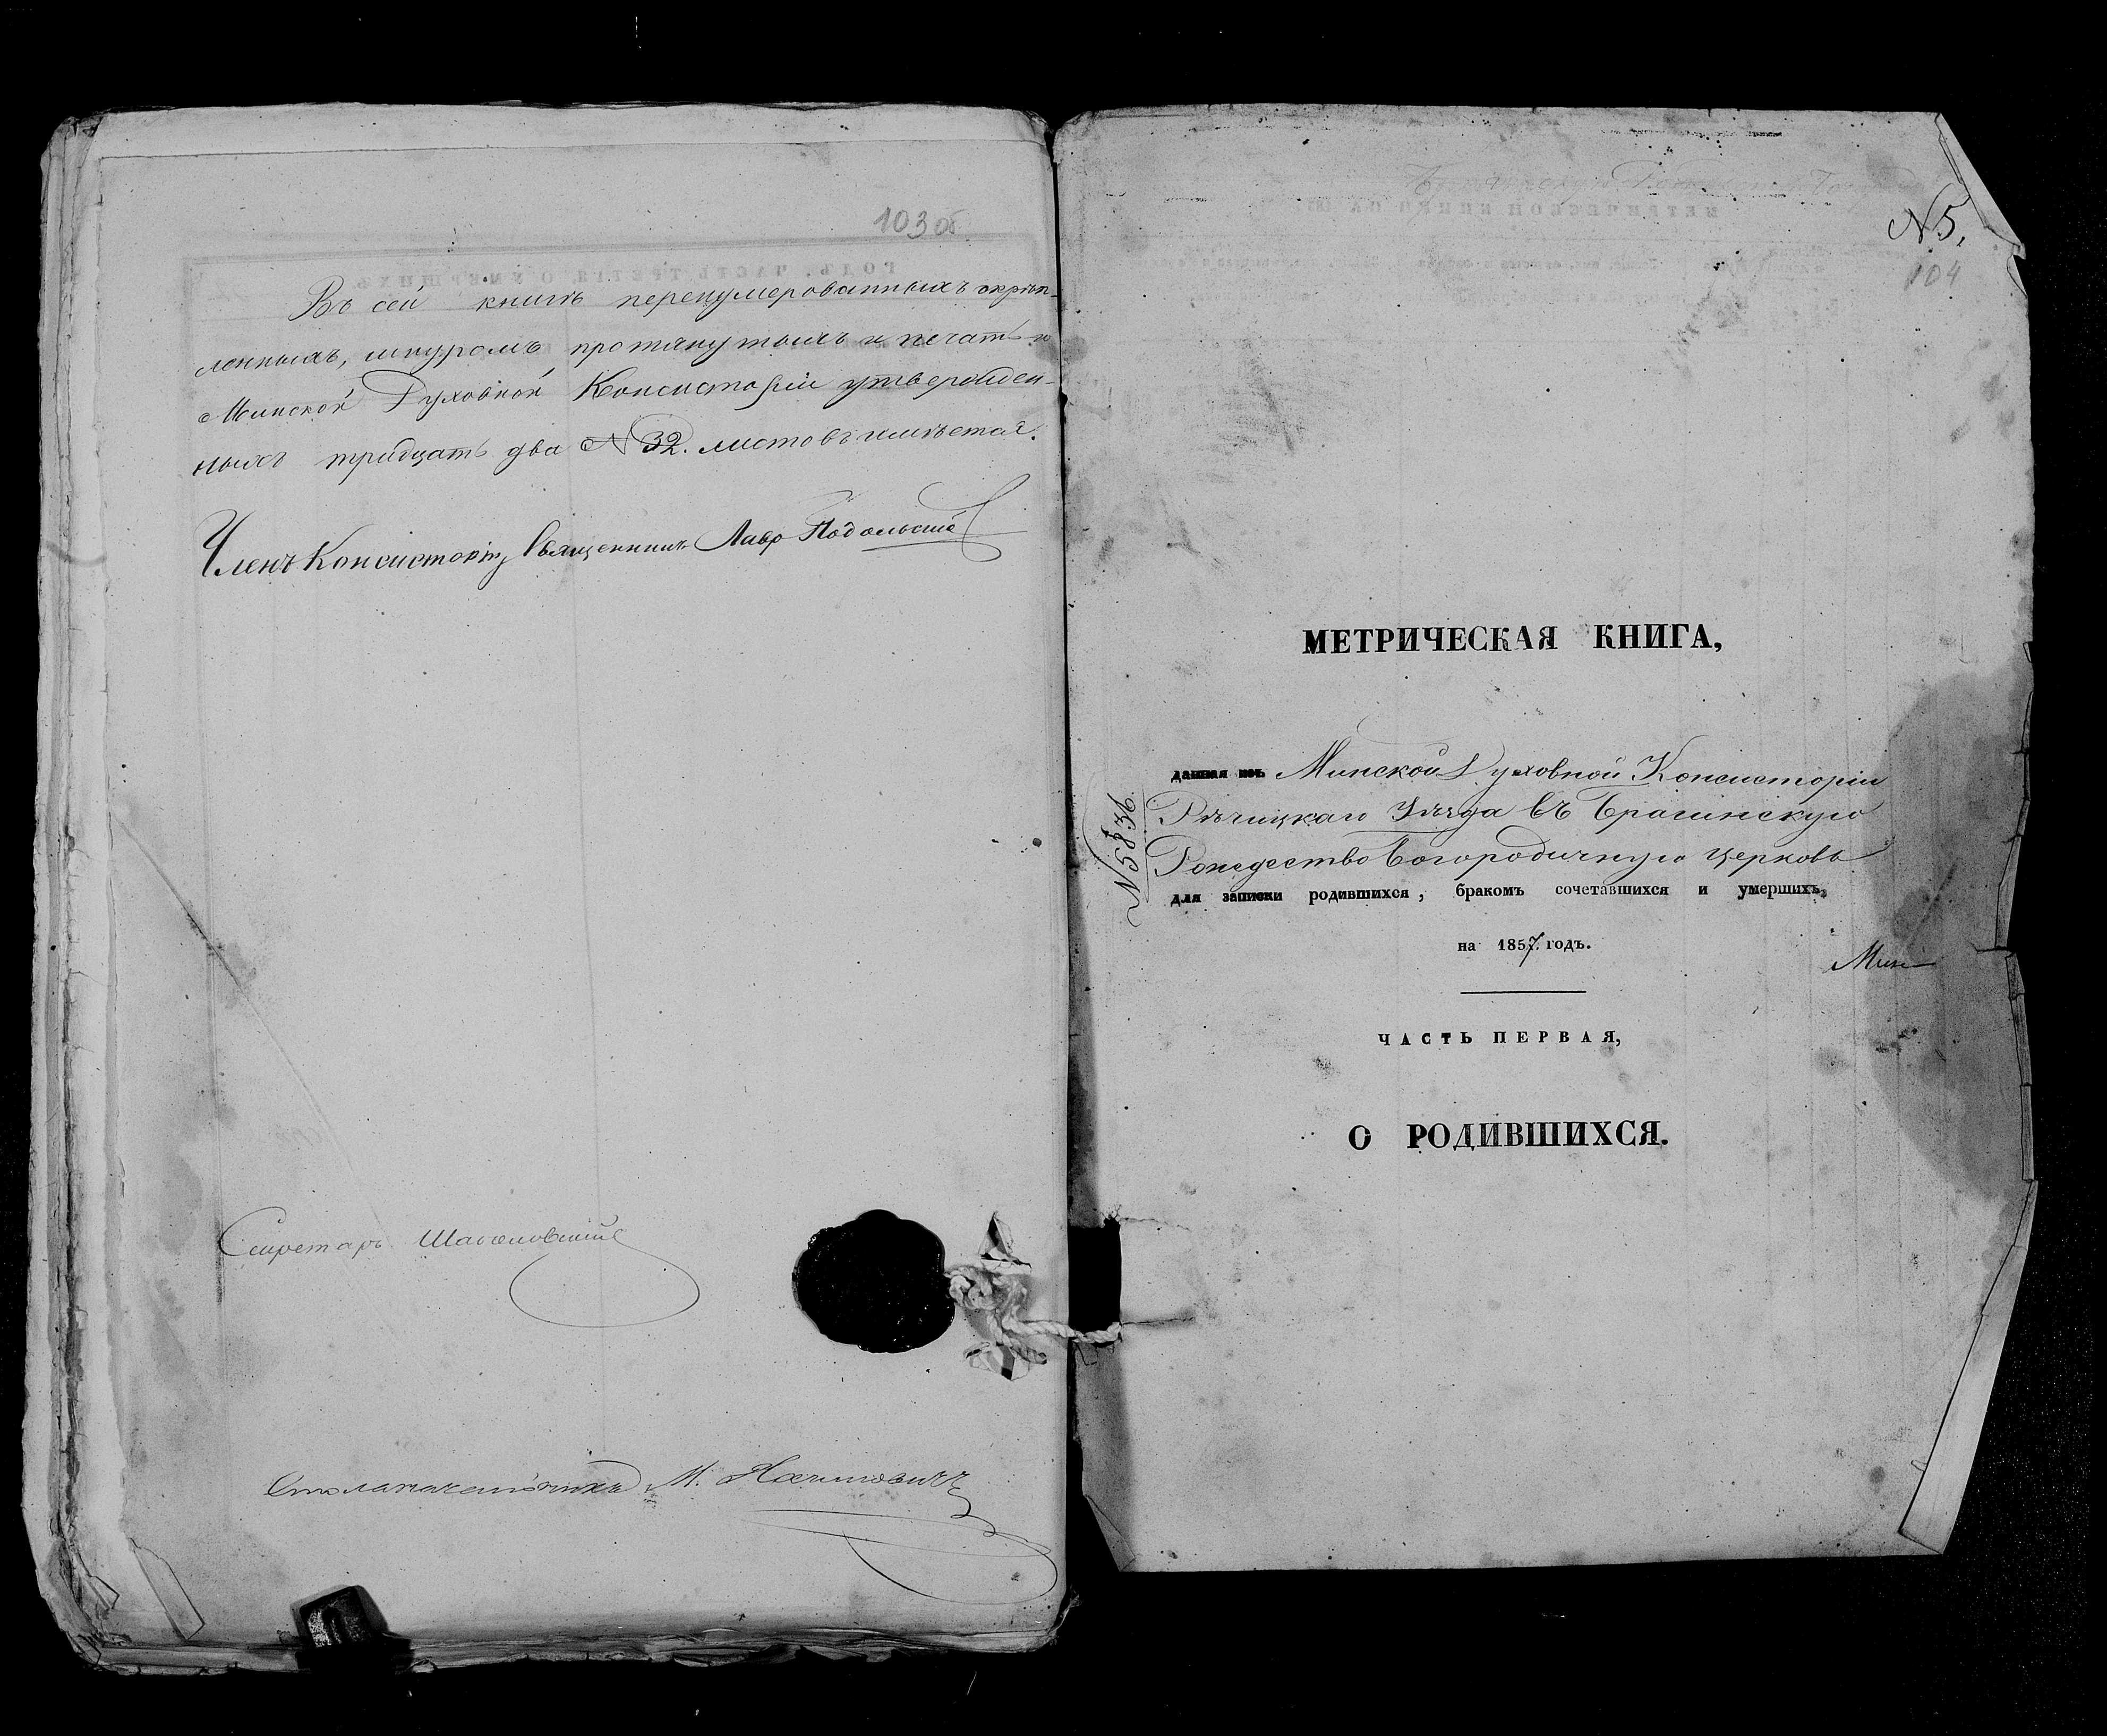 103 об
Въ сей книгѣ перенумерованныхъ скрѣп-
ленныхъ, шнуромъ протянутыхъ и печатью
Минской Духовной Консисторіи утвержден-
ныхъ тридцать два N 32. листовъ имѣется.
Членъ Консисторіи Священникъ Лавр Подольскій
Секретарь
Столоначальникъ М.
N 5.
104
МЕТРИЧЕСКАЯ КНИГА,
данная изъ Минской Духовной Консисторіи
Рѣчицкаго Уѣзда въ Брагинскую
Рождество Богородичную церковь
для записки родившихся, бракомъ сочетавшихся и умершихъ,
N 5836
на 1857. годъ.
Мин
ЧАСТЬ ПЕРВАЯ,
О РОДИВШИХСЯ.